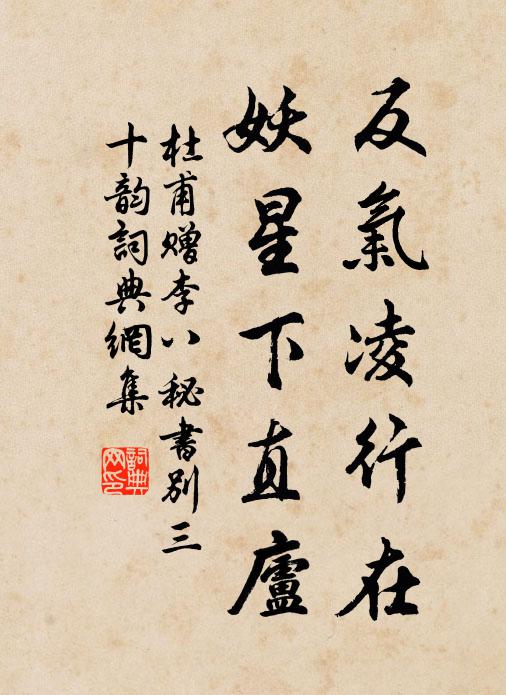 反氣凌行在
妖星下直廬
杜甫赠李八秘書別三
十韵詞典網集
詞典
网印